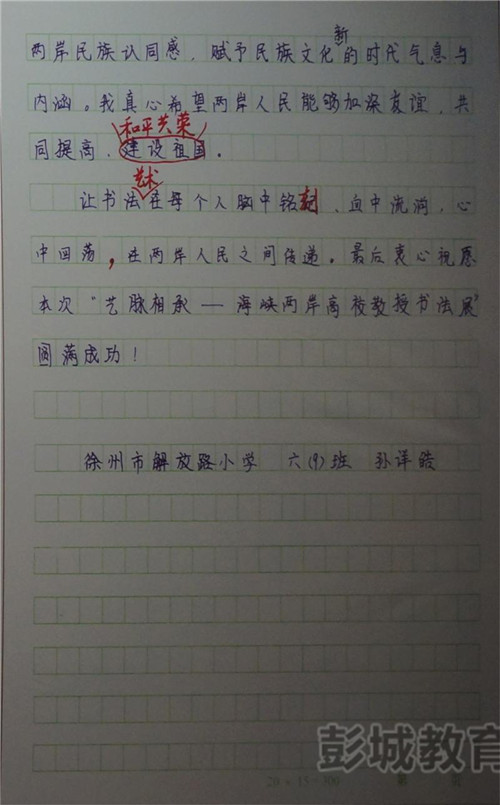 新
两岸民族认同感，赋予民族文化的时代气息与
内涵。我真心希望两岸人民能够加深友谊，共
和平共荣
同提高，建设祖国。
艺术
让书法在每个人胸中铭刻，血中流淌，心
中回荡，在两岸人民之间传递。最后衷心祝愿
本次“艺脉相承——海峡两岸高校教授书法展”
圆满成功！
徐州市解放路小学 六(9)班 孙洋皓
彭城教育
20×15=300
第 页